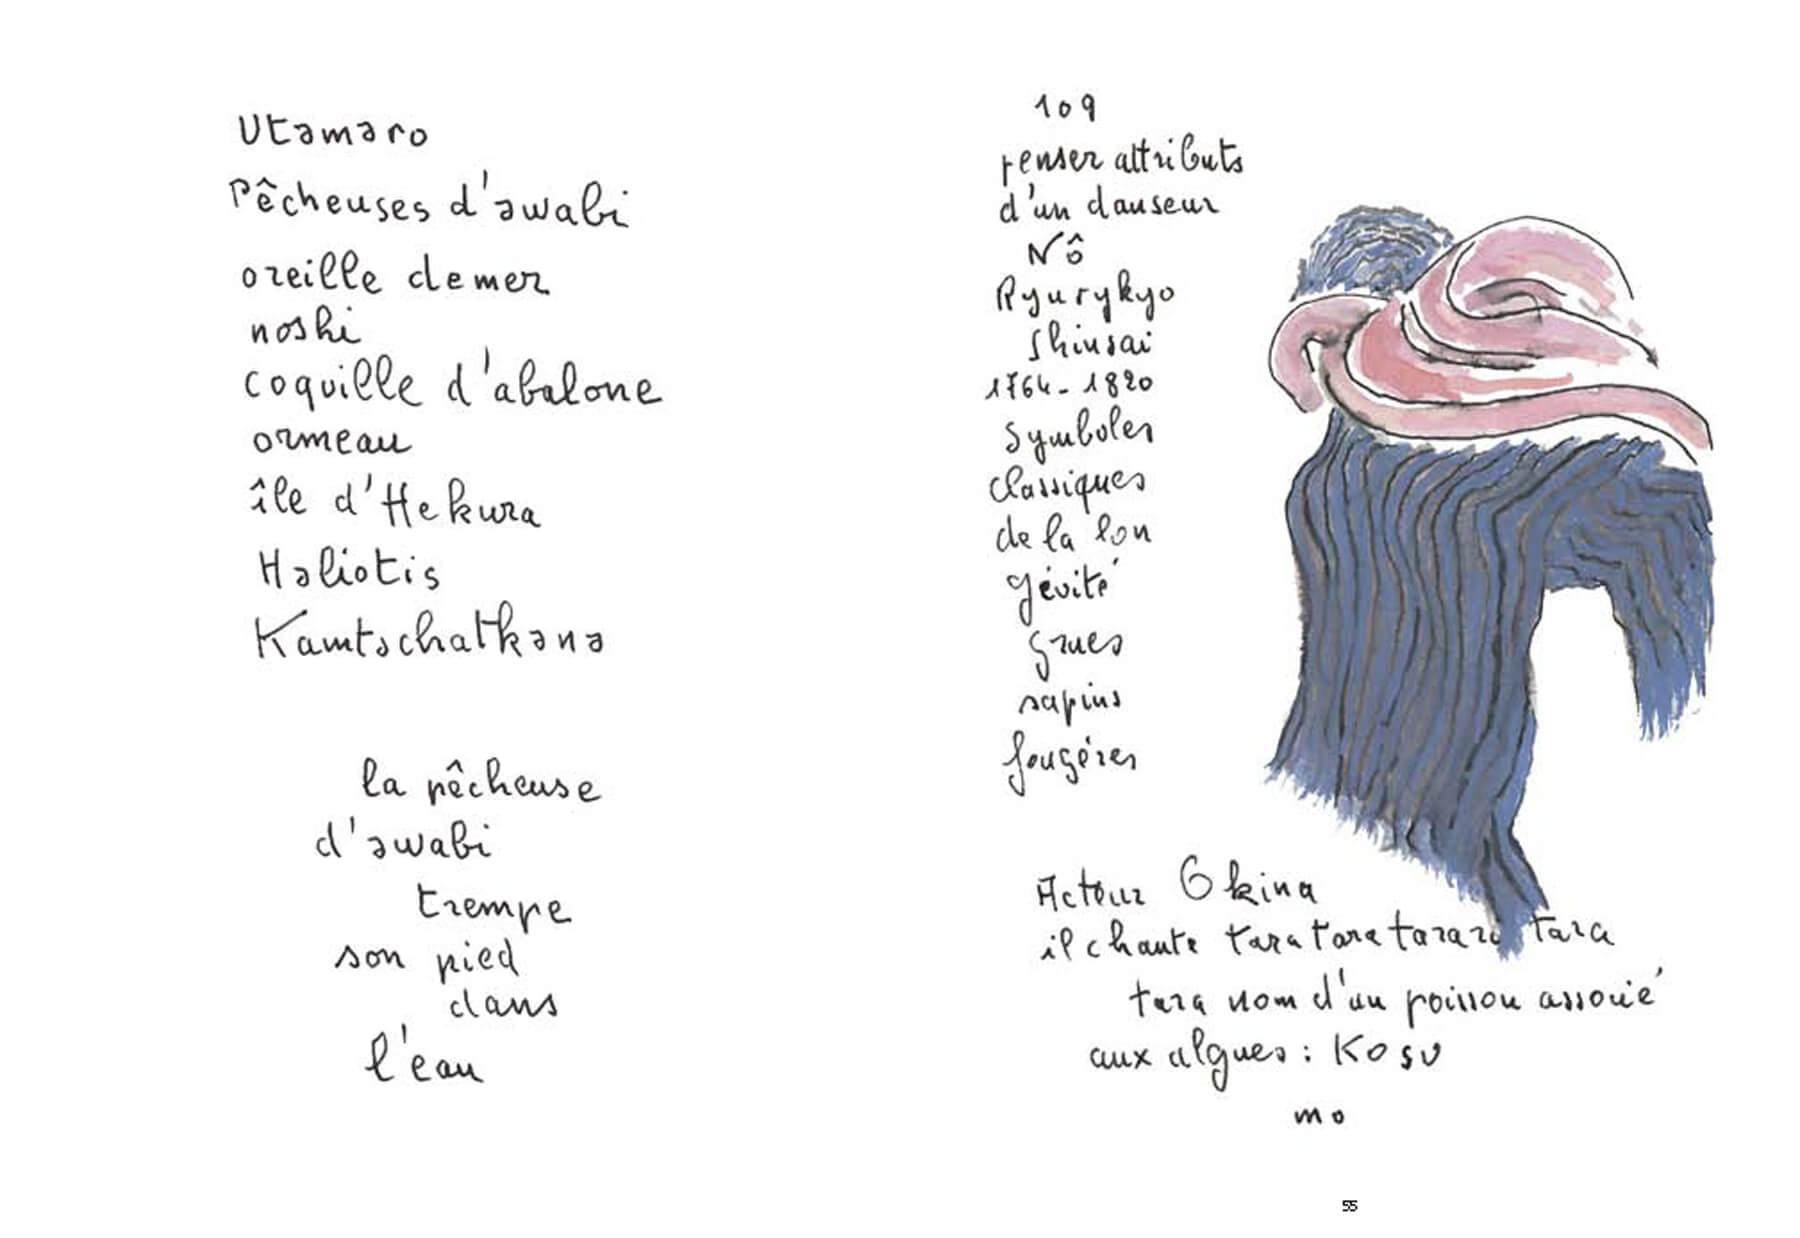 Utamaro
Pêcheuses d'awabi
oreille de mer
noshi
coquille d'abalone
ormeau
île d'Hekura
Haliotis
Kamtschatkana
la pêcheuse
d'awabi
trempe
son pied
dans
l'eau
109
penser attributs
d'un danseur
Nô
Ryurykyo
Shinsai
1764-1820
Symboles
classiques
de la lon
gévité
grues
sapins
fougéres
Acteur Okina
il chante tarataratarara tara
tara nom d'un poisson associé
aux algues : Kosu
mo
55